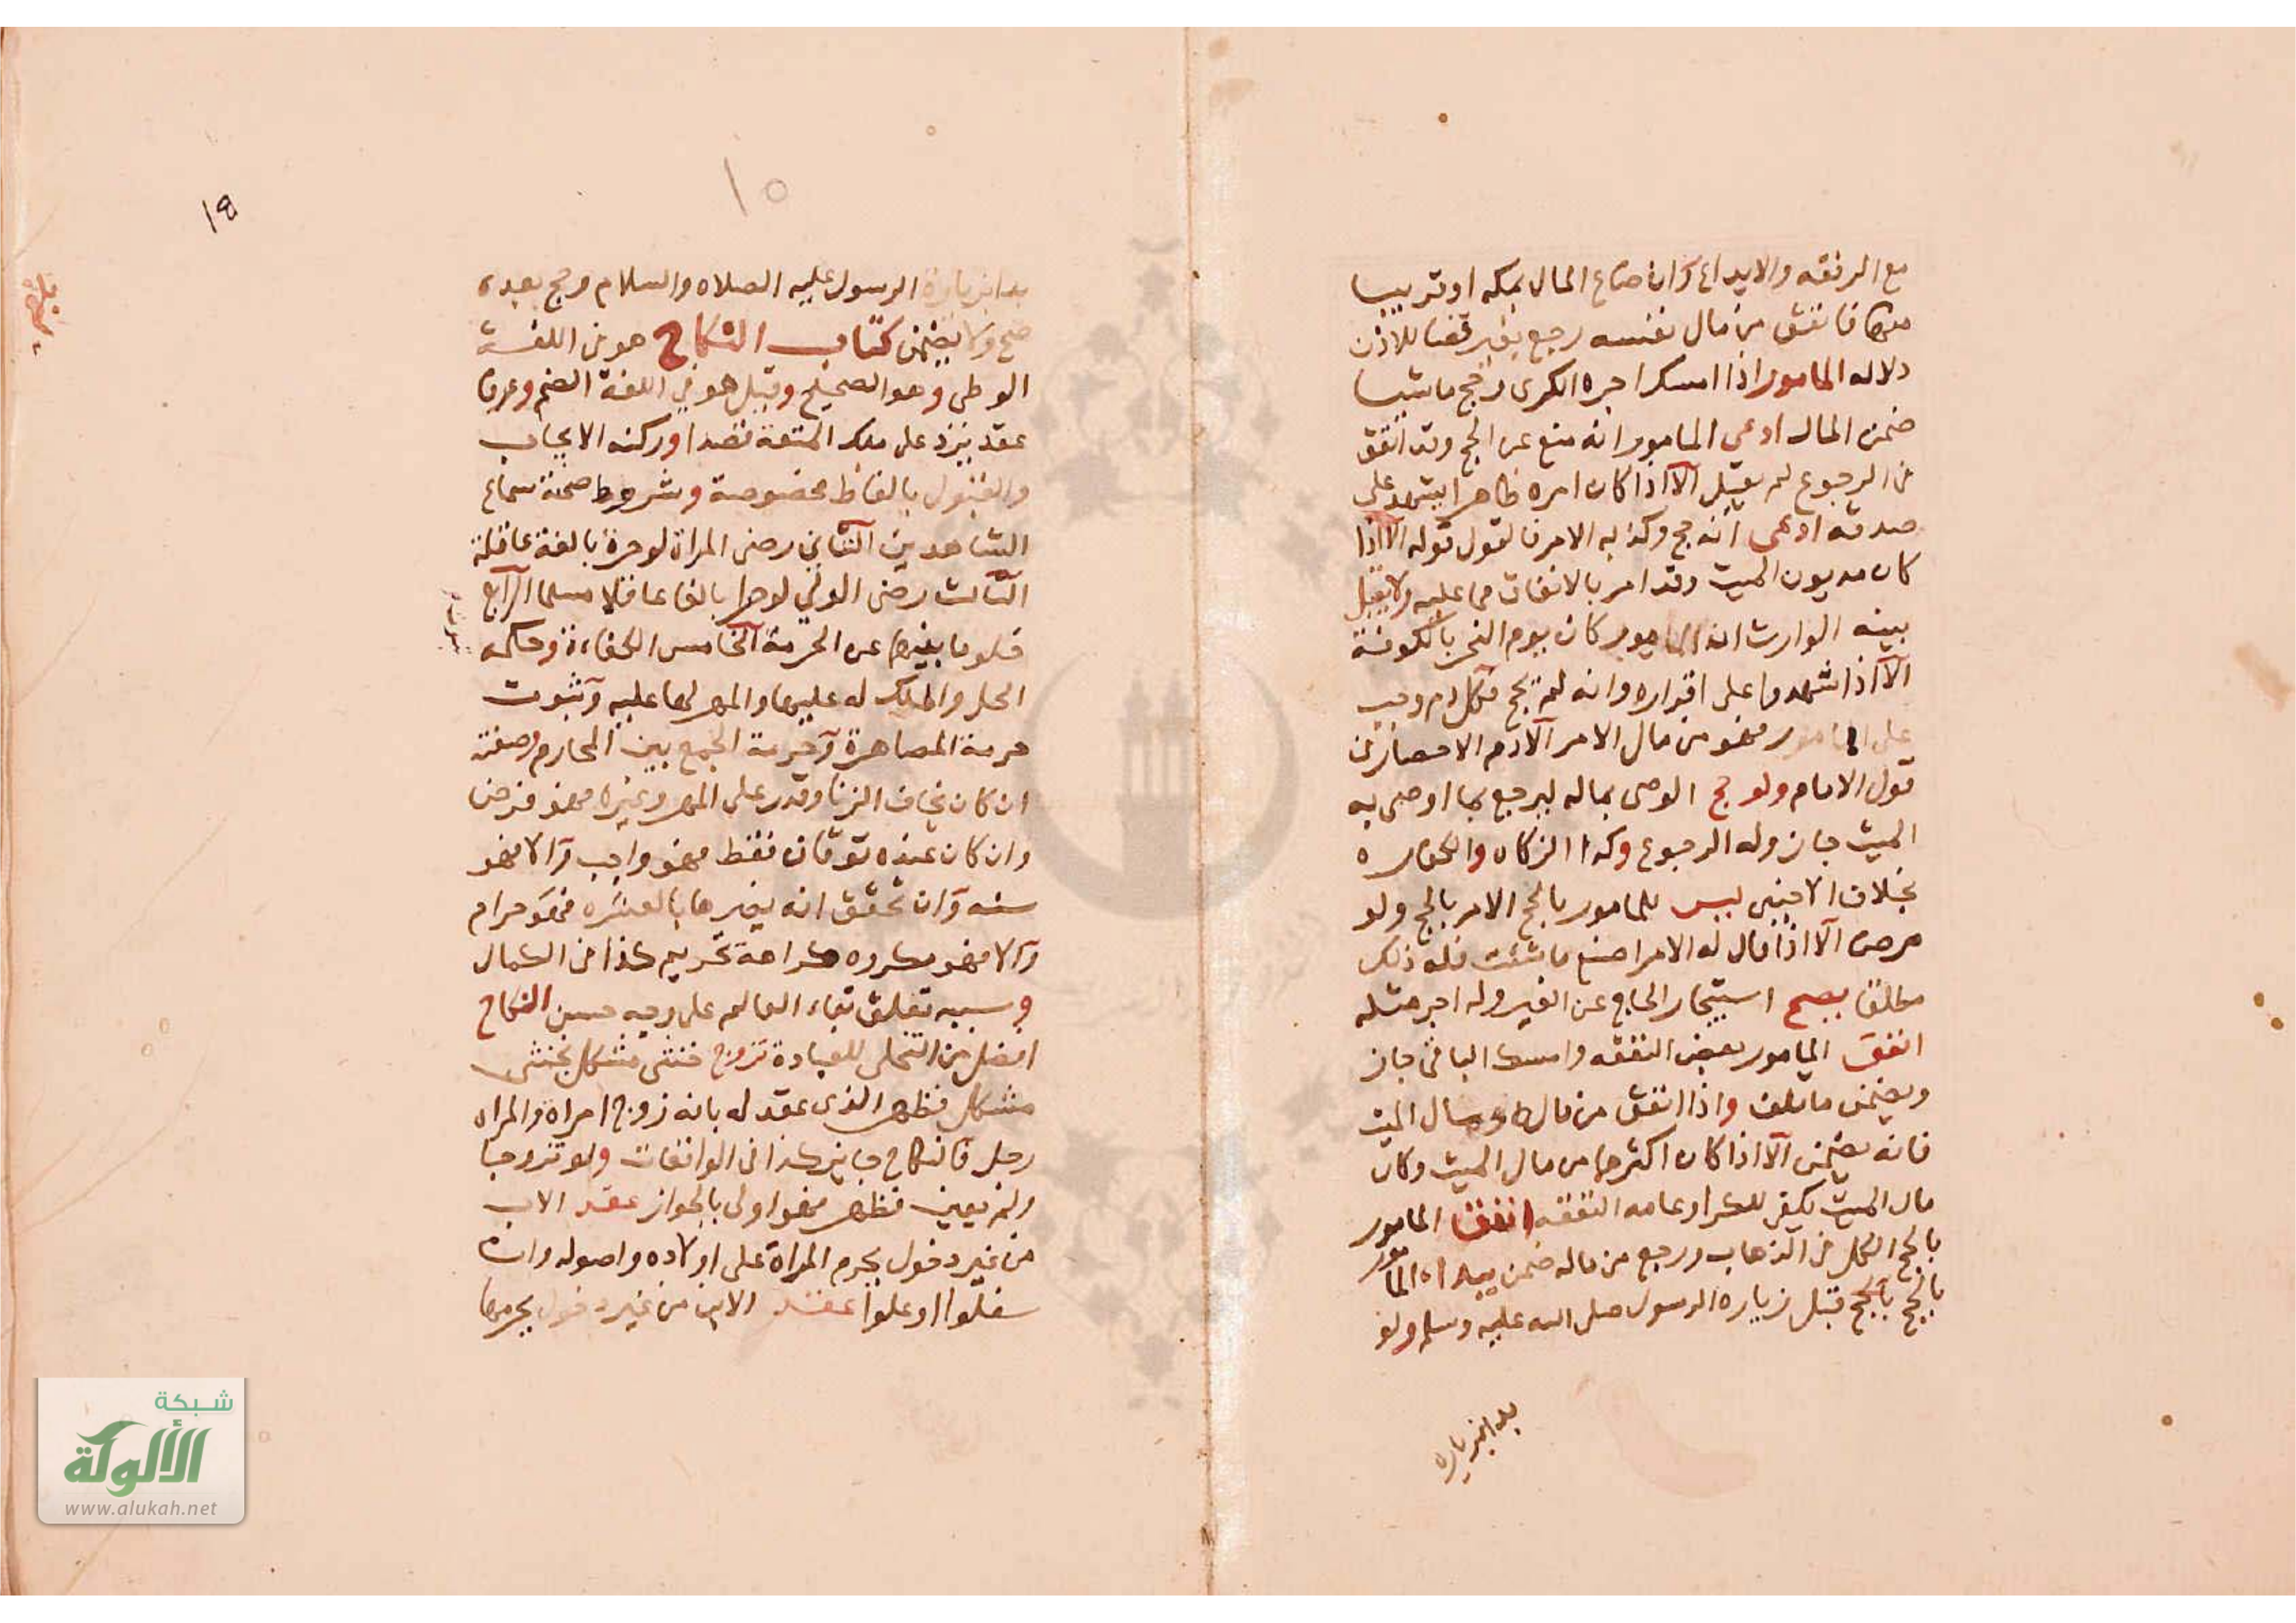 مع الرفقه والايداع وان ضاع المال بمكه او قريبا
منها فانفق من مال نفسه رجع بغير قضا للاذن
دلاله المامور اذا امسك اجره الكرى وحج ماشيا
ضمن المال ادعى المامور انه منع عن الحج وقد انفق
في الرجوع لم يقبل الا اذا كان امره ظاهرا يشهد على
صدقه ادعى انه حج وكذبه الامر فالقول قوله الا اذا
كان مديون الميت وقد امر بالانفاق مما عليه ولا يقبل
بينه الوارث ان المامور كان يوم النحر بالكوفة
الا اذا شهدوا على اقراره وانه لم يحج وكل دم وجب
على المامور فهو من مال الامر الا دم الاحصار في
قول الامام ولو حج الوصى بماله ليرجع بما اوصى به
الميت جاز وله الرجوع وكذا الزكاه والكفاره
بخلاف الاجنبى ليس للمامور بالحج الامر بالحج ولو
مرض الا اذا قال له الامر اصنع ما شئت فله ذلك
مطلقا يصح استيجار الحاج عن الغير وله اجر مثله
انفق المامور بعض النفقه وامسك الباقى جاز
ويضمن ما تلف واذا انفق من ماله ومال الميت
فانه يضمن الا اذا كان اكثرها من مال الميت وكان
مال الميت يكفى للكرا وعامه النفقه انفق المامور
بالحج الكل في الذهاب ورجع من ماله ضمن يبداه المامور
بالحج بالحج قبل زياره الرسول صلى الله عليه وسلم ولو
بدا بزياره
١٩
١٥
بدا بزيارة الرسول عليه الصلاه والسلام وحج بعده
صح ولا يضمن كتاب النكاح هو في اللغة
الوطى وهو الصحيح وقيل هو في اللغة الضم وعرفا
عقد يرد على ملك المتعة قصدا وركنه الايجاب
والقبول بالفاظ مخصوصة وشروط صحته سماع
الشاهدين الثاني رضى المراة لو حرة بالغة عاقلة
الثالث رضى الولي لو حرا بالغا عاقلا مسلما الرابع
خلوها بغيرها عن الحرمة الخامس الكفاءة وحكمه
الحل والملك له عليها والمهر لها عليه وثبوت
حرمة المصاهرة وحرمة الجمع بين المحارم وصفته
ان كان يخاف الزنا وقدر على المهر وغيره فهو فرض
وان كان عنده توقان فقط فهو واجب والا فهو
سنه وان تحقق انه يضرها بالعشره فهو حرام
والا فهو مكروه كراهة تحريم كذا في الكمال
وسببه تعلق بقاء العالم على وجه حسن النكاح
افضل من التخلى للعبادة تزوج خنثى مشكل بخنثى
مشكل فظهر الذى عقد له بانه زوج امراه والمراه
رجل فالنكاح جايز كذا في الواقعات ولو تزوجا
ولم يعين فظهر فهو اولى بالجواز عقد الاب
من غير دخول يحرم المراة على اولاده واصوله وان
سفلوا او علوا عقد الابن من غير دخول يحرمها
شبكة
الألوكة
www.alukah.net